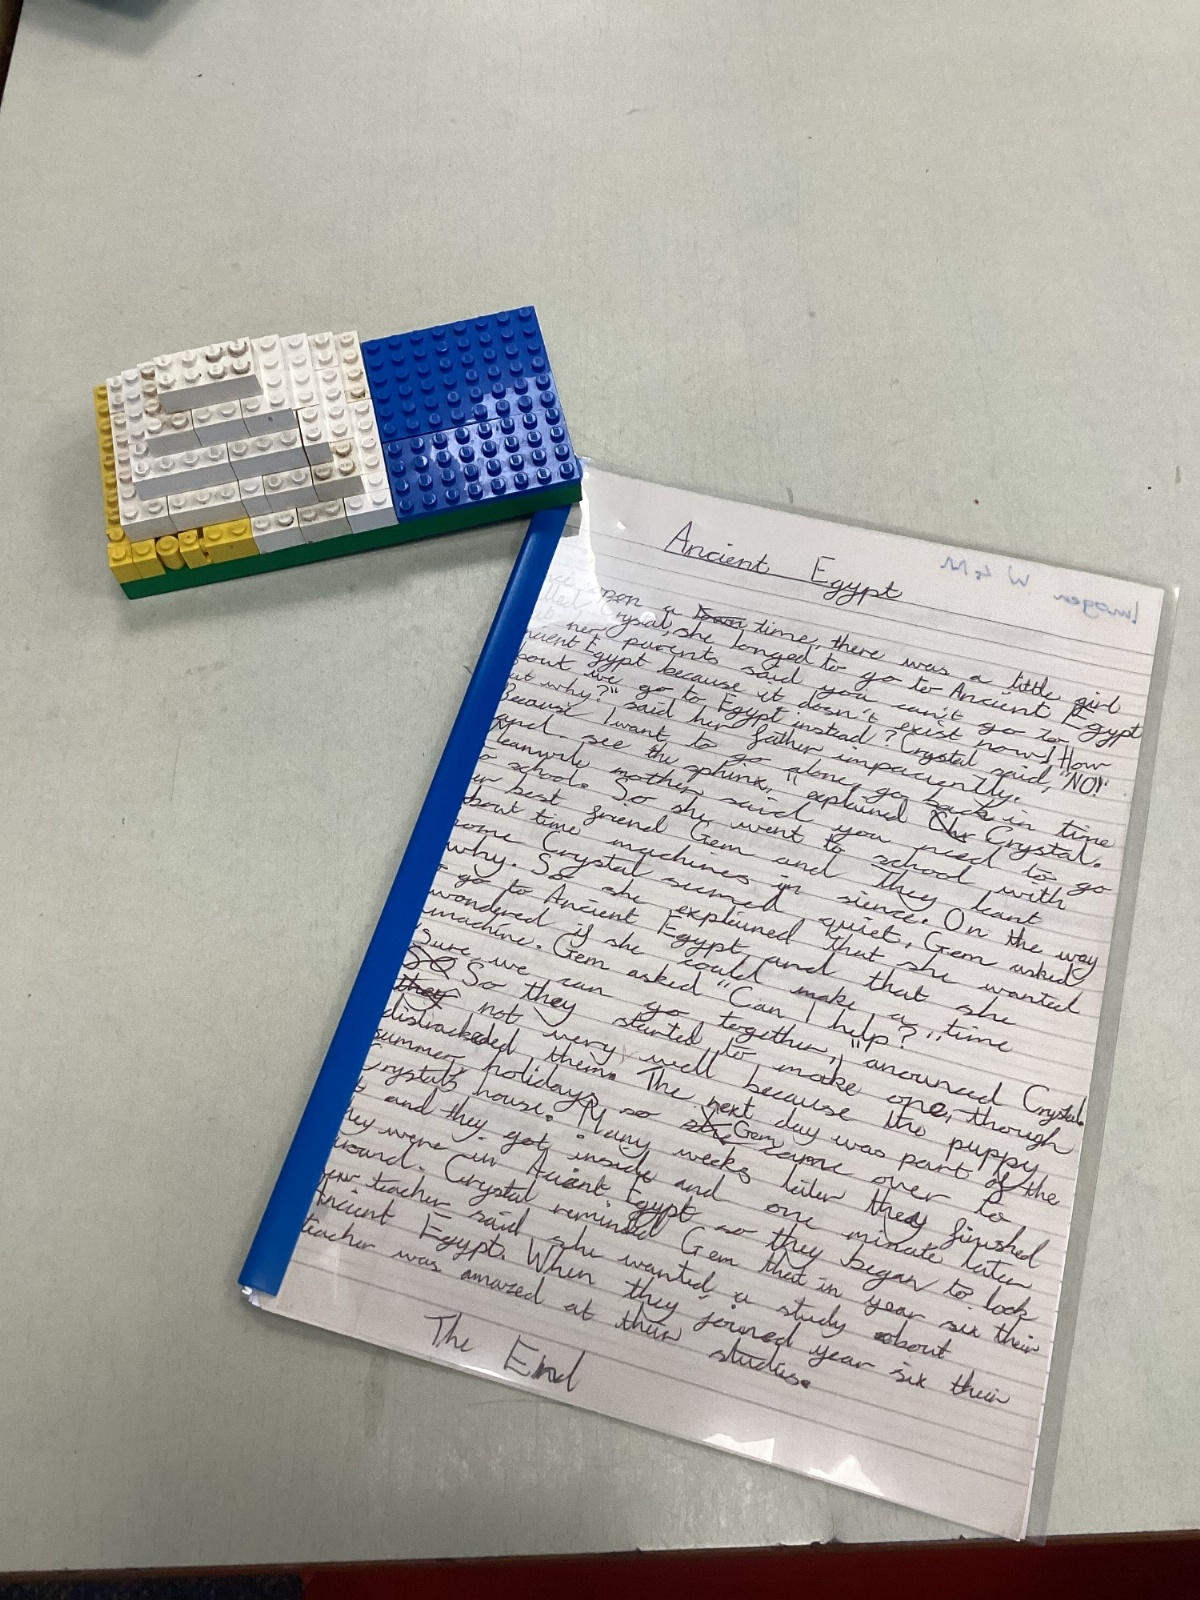 Ancient Egypt
Imogen W4M
upon a time, there was a little girl
Crysal, she longed to go to Ancient Egypt
her parents said you can't go to
Egypt because it doesn't exist now! How
we go to Egypt instead? Crystal said, "NO!"
why?" said her father impaciently.
Because I want to go alone, go back in time
and see the sphinx," explained Crystal.
Meanwile mother said you need to go
school. So she went to school with
best friend Gem and they leant
about time machines in sience. On the way
home Crystal seemed quiet, Gem asked
why. So she explained that she wanted
go to Ancient Egypt and that she
wondered if she could make a time
machine. Gem asked "Can I help?"
"Sure we can go together," anounced Crystal.
So they started to make one, though
not very well because the puppy
distrackeded them. The next day was part of the
summer holidays so Gem came over to
Crystals house. Many weeks later they finished
it and they got inside and one minate later
they were in Acient Egypt so they began to look
around. Crystal reminded Gem that in year six their
new teacher said she wanted a study about
Ancient Egypt. When they joined year six their
teacher was amazed at their studies.
The End